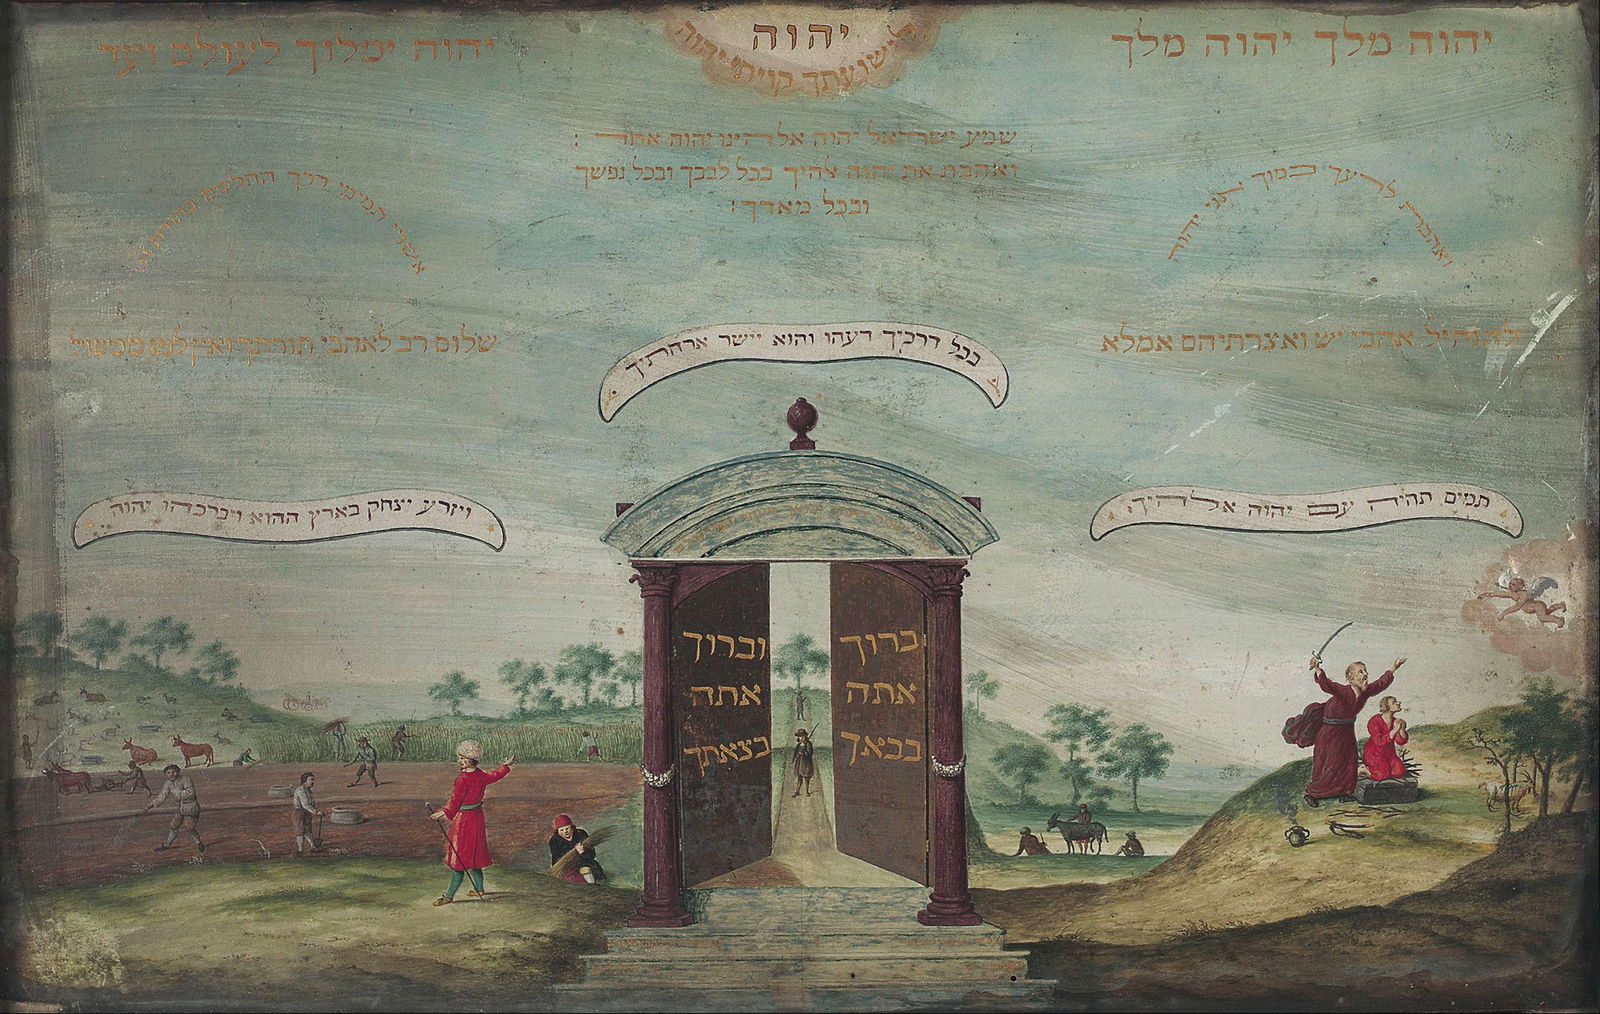 יהוה
לישועתך קויתי יהוה
יהוה מלך יהוה מלך
יהוה ימלוך לעולם ועד
שמע ישראל יהוה אלהינו יהוה אחד :
ואהבת את יהוה אלהיך בכל לבבך ובכל נפשך
ובכל מאדך :
ואהבת לרעך כמוך אני יהוה
אשרי תמימי דרך ההלכים בתורת
להנחיל אהבי יש ואצרתיהם אמלא
שלום רב לאהבי תורתך ואין למו מכשול
בכל דרכיך דעהו והוא יישר ארחתיך
תמים תהיה עם יהוה אלהיך
ויזרע יצחק בארץ ההוא ויברכהו יהוה
ברוך
אתה
בבאך
וברוך
אתה
בצאתך